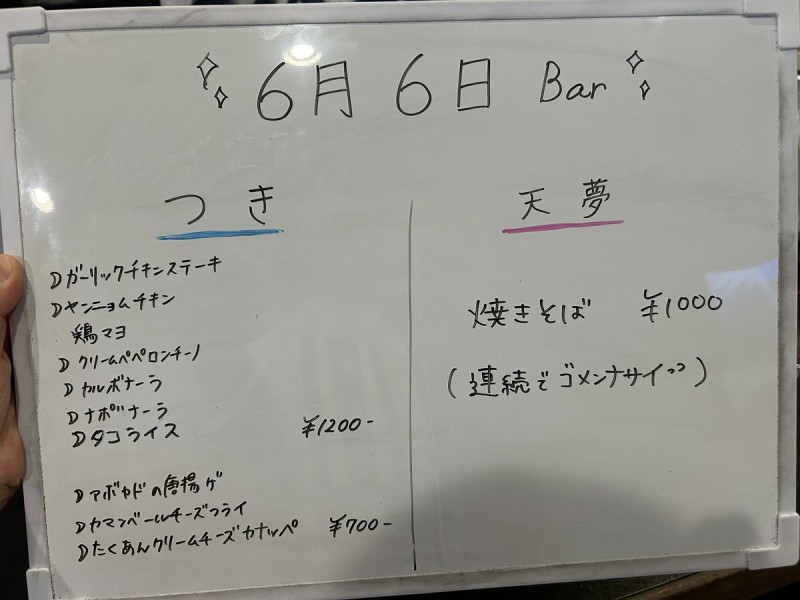 6月6日 Bar
つき
Dガーリックチキンステーキ
Dヤンニョムチキン
鶏マヨ
Dクリームペペロンチーノ
Dカルボナーラ
Dナポボナーラ
Dタコライス ¥1200-
Dアボカドの唐揚ゲ
Dカマンベールチーズフライ
Dたくあんクリームチーズカナッペ ¥700-
天夢
焼きそば ¥1000
(連続でゴメンナサイっっ)